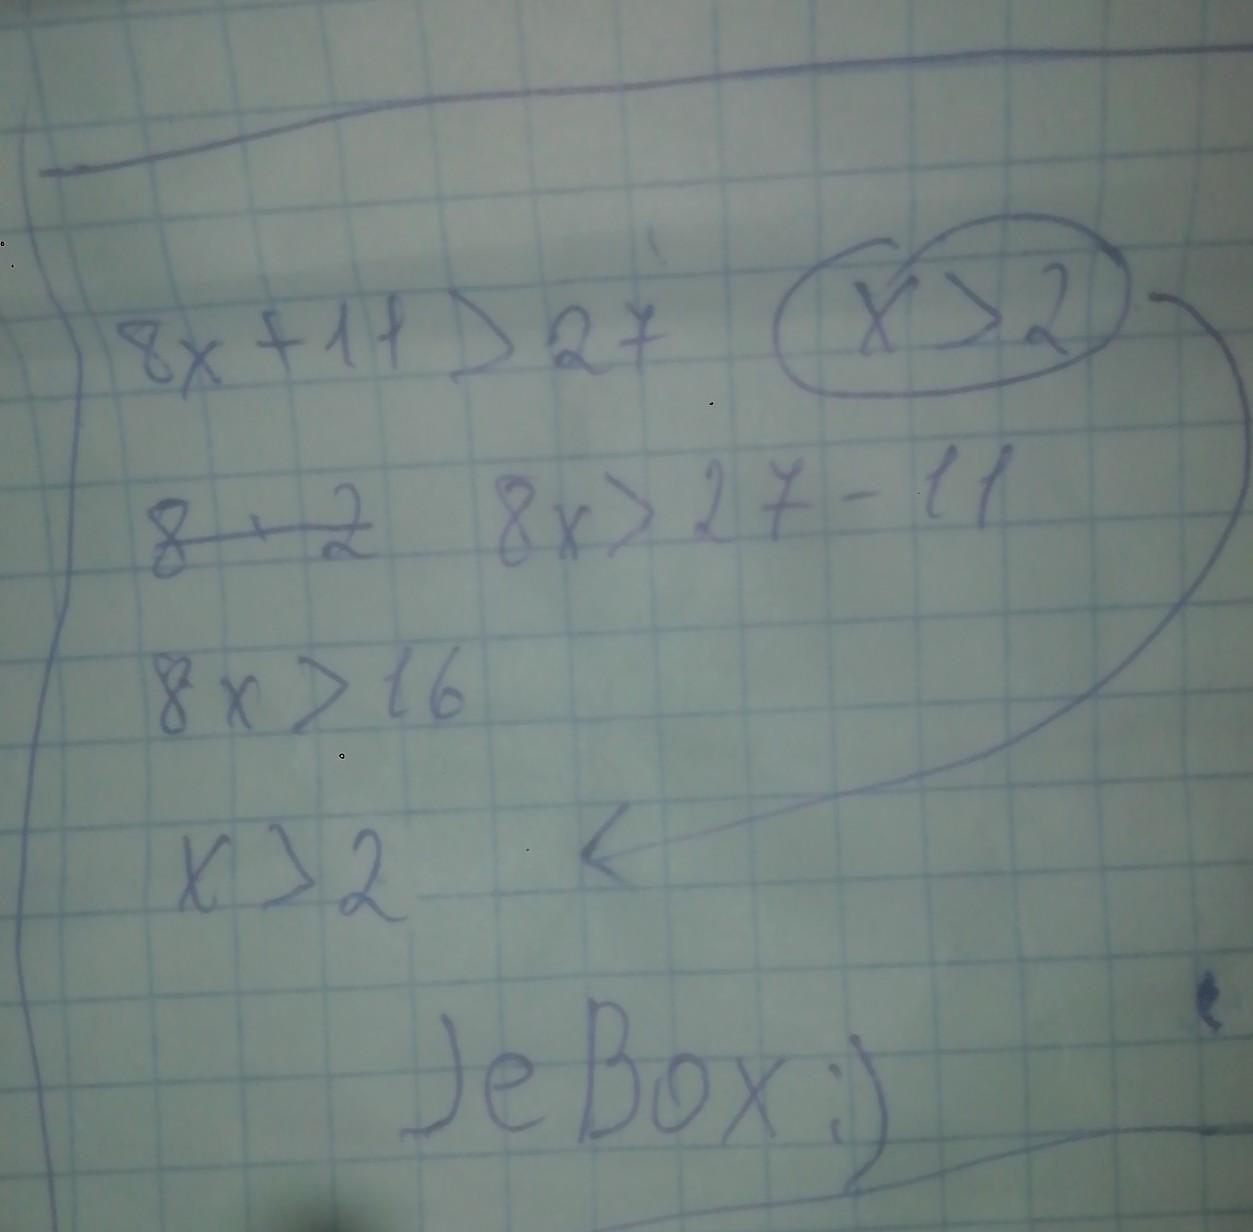 8x + 11 > 27 x > 2
8x > 27 - 11
8x > 16
x > 2
JeBox :)